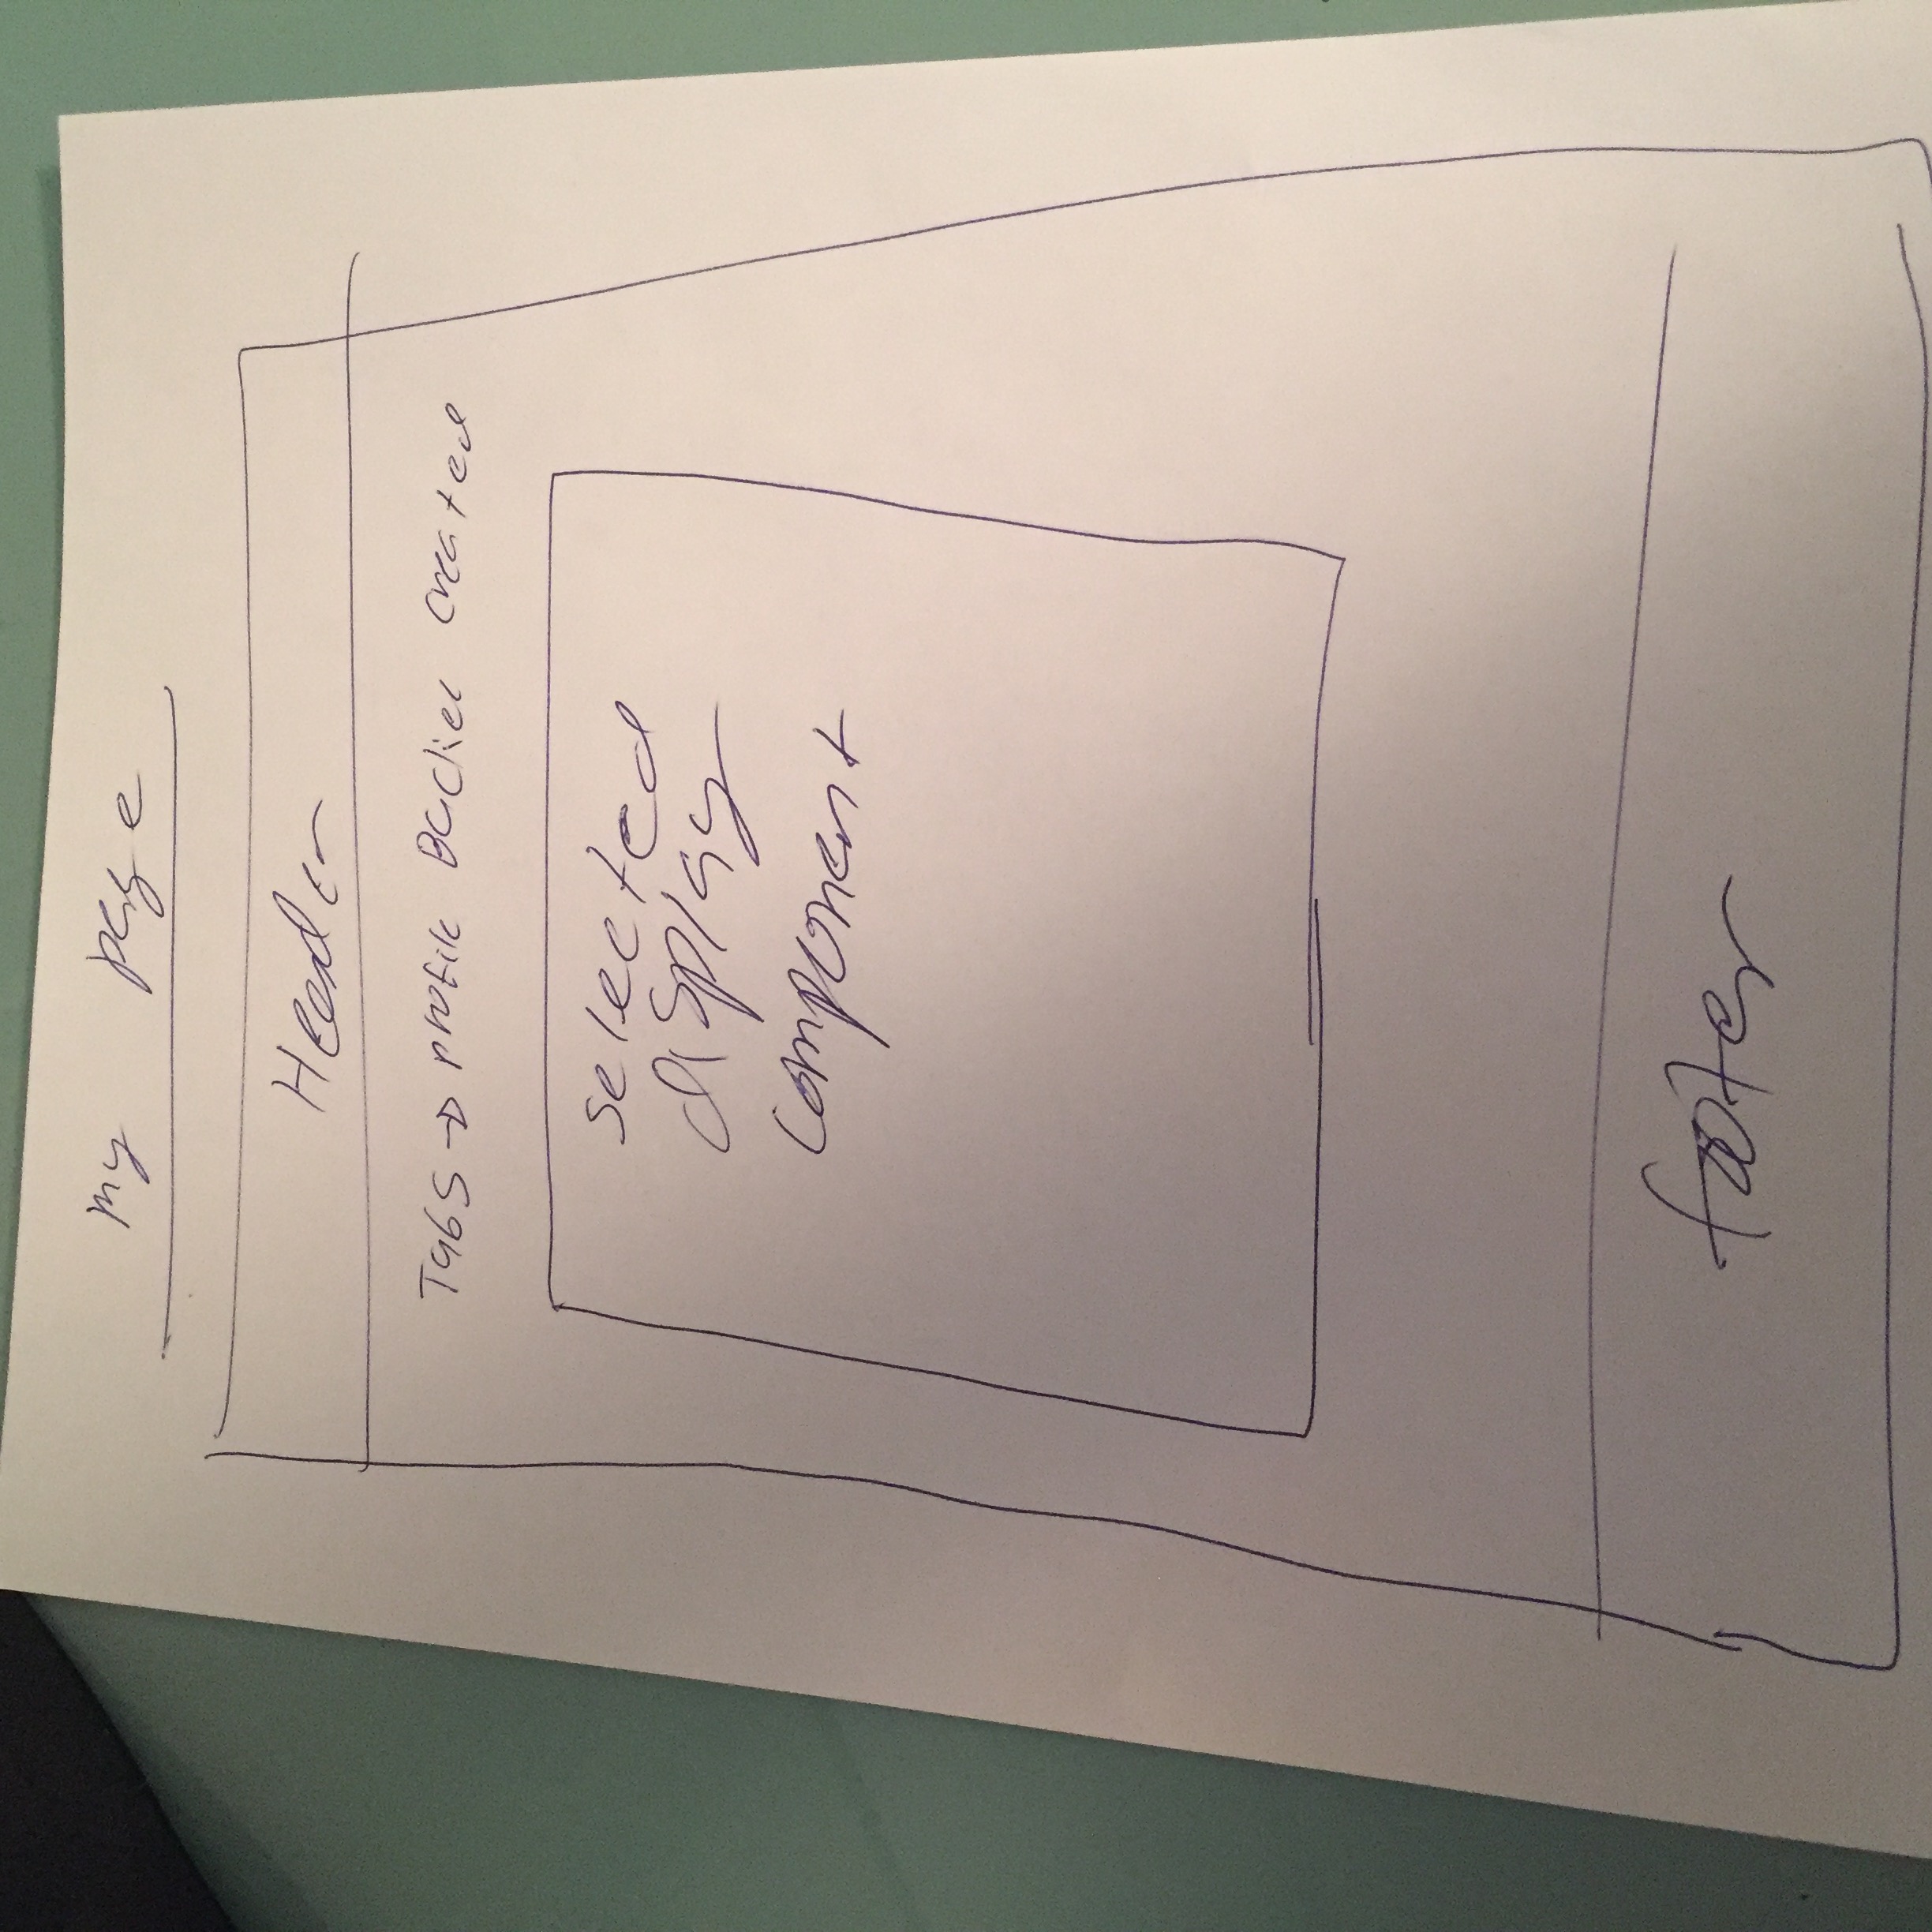 my page
Header
Tabs → profile Backed created
selected
display
component
footer